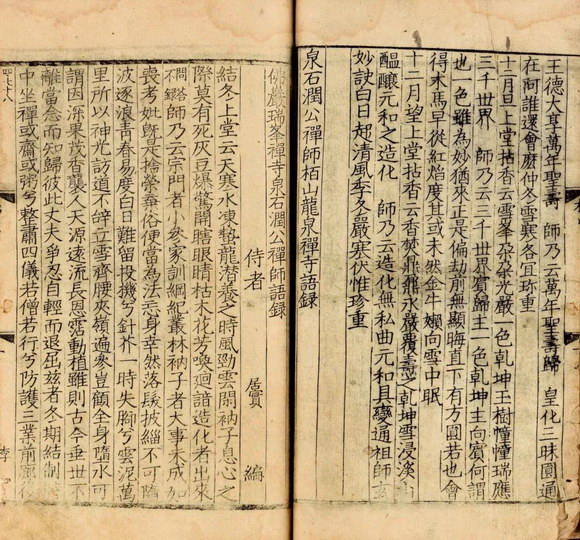 王德大亨萬年聖壽　師乃云萬年聖壽歸　皇化三昧圓通
在阿誰還會麽仲冬雪寒各宜珍重
十二月旦上堂拈香云雪峯朶朶光嚴一色乾坤玉樹幢幢瑞應
三千世界　師乃云三千世界賓歸主一色乾坤主向賓何謂
也一色雖為妙猶來正是偏劫前無顯晦直下有方圓若也會
得木馬早從紅焰度其或未然金牛嬾向雪中眠
十二月望上堂拈香云香𤇆鼎鼎水嚴覆燾之乾坤雪浸
醞釀元和之造化　師乃云造化無私曲元和具變通祖師玄
妙訣白日起清風季冬嚴寒伏惟珍重
泉石潤公禪師栢山龍泉禪寺語錄
佛嚴瑞峯禪寺泉石潤公禪師語錄
侍者　編
結冬上堂云天寒水凍蟄龍潛養之時風勁雲閑衲子息心之
際莫有死灰豆爆驚開瞎眼睛枯木花芳喚廻諳造化者出來
師乃云宗門者小參家訓綱紀叢林衲子者大事未成如
喪考妣旣是捨榮棄俗便當為法忘身幸然落髮披緇不可隨
波逐浪青春易度白日難留投機兮針芥一時失脚兮雲泥萬
里所以神光訪道不辭立雪齊腰夾嶺過參豈顧全身隨水可
謂因深果茂香襲人天源遠流長恩霑動植雖則古今垂世不
離當念而知歸彼此丈夫爭忍自輕而退屈茲者冬期結制
中坐禪或齋或粥兮整肅四儀若僧若行兮防護三業前